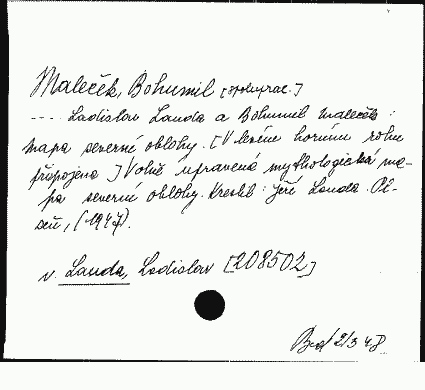 Maleček, Bohumil [spoluprac.]
---- Ladislav Lauda a Bohumil Maleček :
mapa severní oblohy. [V levém horním rohu
připojena] Volně upravená mythologická ma-
pa severní oblohy. Kreslil: Jiří Lauda. Pl-
zeň, (1947).
v. Lauda, Ladislav [208502]
2/3 48